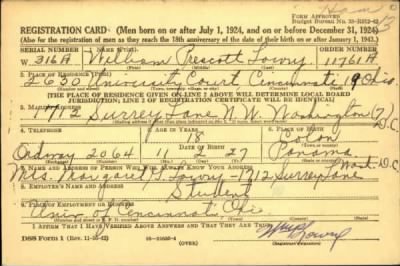 FORM APPROVED
Budget Bureau No. 33-R012-42
REGISTRATION CARD—(Men born on or after July 1, 1924, and on or before December 31, 1924)
(Also for the registration of men as they reach the 18th anniversary of the date of their birth on or after January 1, 1943.)
SERIAL NUMBER
1. NAME (Print)
ORDER NUMBER
W 316A
William Prescott Lowry
11761A
2. PLACE OF RESIDENCE (Print)
2630 University Court Cincinnati 19 Ohio
[THE PLACE OF RESIDENCE GIVEN ON LINE 2 ABOVE WILL DETERMINE LOCAL BOARD
JURISDICTION; LINE 2 OF REGISTRATION CERTIFICATE WILL BE IDENTICAL]
3. MAILING ADDRESS
1712 Surrey Lane N.W. Washington 7 D.C.
4. TELEPHONE
6. PLACE OF BIRTH
18
Colon
Ordway 2064
11
27
Panama
7. NAME AND ADDRESS OF PERSON WHO WILL ALWAYS KNOW YOUR ADDRESS
Lowry - 1712 Surrey Lane Wash D.C.
8. EMPLOYER'S NAME AND ADDRESS
Student
9. PLACE OF EMPLOYMENT OR BUSINESS
Univ of Cincinnati Ohio
I AFFIRM THAT I HAVE VERIFIED ABOVE ANSWERS AND THAT THEY ARE TRUE.
DSS Form 1 (Rev. 11-16-42)
(OVER)
Lowry